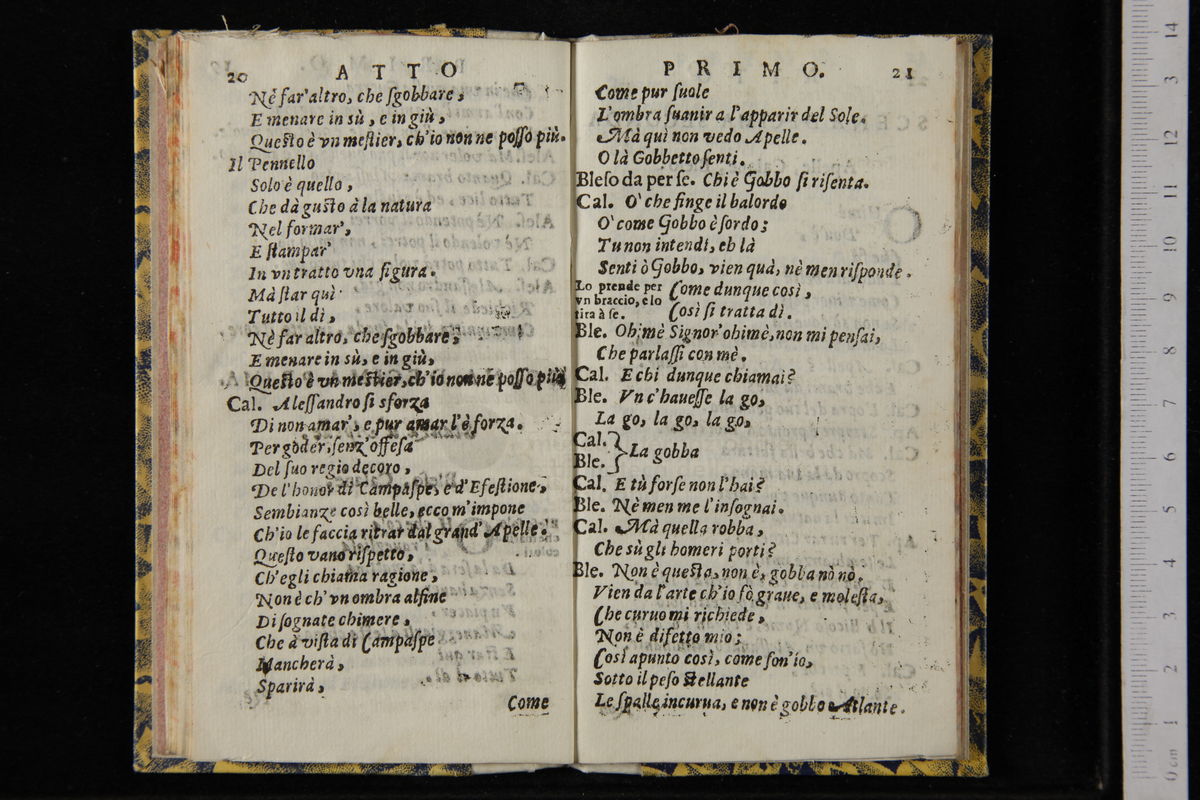 20 ATTO
Nè far'altro, che ſgobbare,
E menare in sù, e in giù,
Queſto è vn meſtier, ch'io non ne poſſo più.
Il Pennello
Solo è quello,
Che dà guſto à la natura
Nel formar',
E ſtampar'
In vn tratto vna figura.
Mà ſtar quì
Tutto il dì,
Nè far altro, che ſgobbare,
E menare in sù, e in giù,
Queſto è vn meſtier, ch'io non ne poſſo più
Cal. Aleſſandro ſi sforza
Di non amar', e pur amar l'è forza.
Per goder, ſenz'offeſa
Del ſuo regio decoro,
De l'honor di Campaſpe, e d'Efeſtione,
Sembianze così belle, ecco m'impone
Ch'io le faccia ritrar dal grand'Apelle.
Queſto vano riſpetto,
Ch'egli chiama ragione,
Non è ch'vn ombra alfine
Di ſognate chimere,
Che à viſta di Campaſpe
Mancherà,
Sparirà,
Come
PRIMO. 21
Come pur ſuole
L'ombra ſuanir a l'apparir del Sole.
Mà quì non vedo Apelle.
O là Gobbetto ſenti.
Bleſo da per ſe. Chi è Gobbo ſi riſenta.
Cal. O' che finge il balordo
O' come Gobbo è ſordo;
Tu non intendi, eh là
Senti ò Gobbo, vien quà, nè men riſponde.
Lo prende per vn braccio, e lo tira à ſe. Come dunque così,
Così ſi tratta dì.
Ble. Ohimè Signor'ohimè, non mi penſai,
Che parlaſſi con mè.
Cal. E chi dunque chiamai?
Ble. Vn c'haueſſe la go,
La go, la go, la go,
Cal.
Ble. } La gobba
Cal. E tù forſe non l'hai?
Ble. Nè men me l'inſognai.
Cal. Mà quella robba,
Che sù gli homeri porti?
Ble. Non è queſta, non è, gobba nò nò.
Vien da l'arte ch'io fò graue, e moleſta,
Che curuo mi richiede,
Non è difetto mio;
Così apunto così, come ſon'io,
Sotto il peſo Stellante
Le ſpalle incurua, e non è gobbo Atlante.